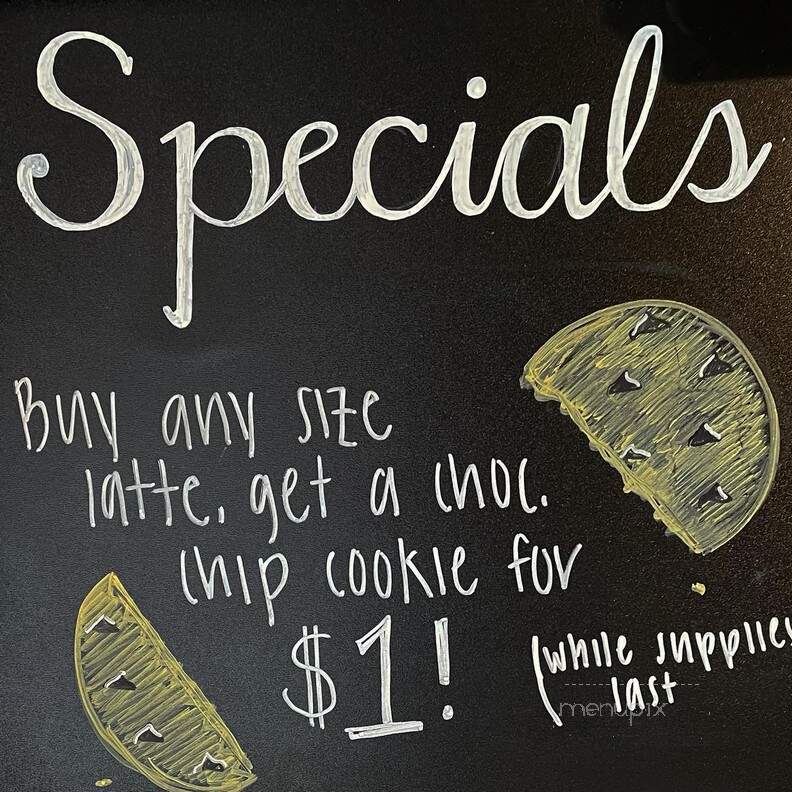 Specials
Buy any size
latte, get a choc.
chip cookie for
$1!
(while supplies
last
menupix